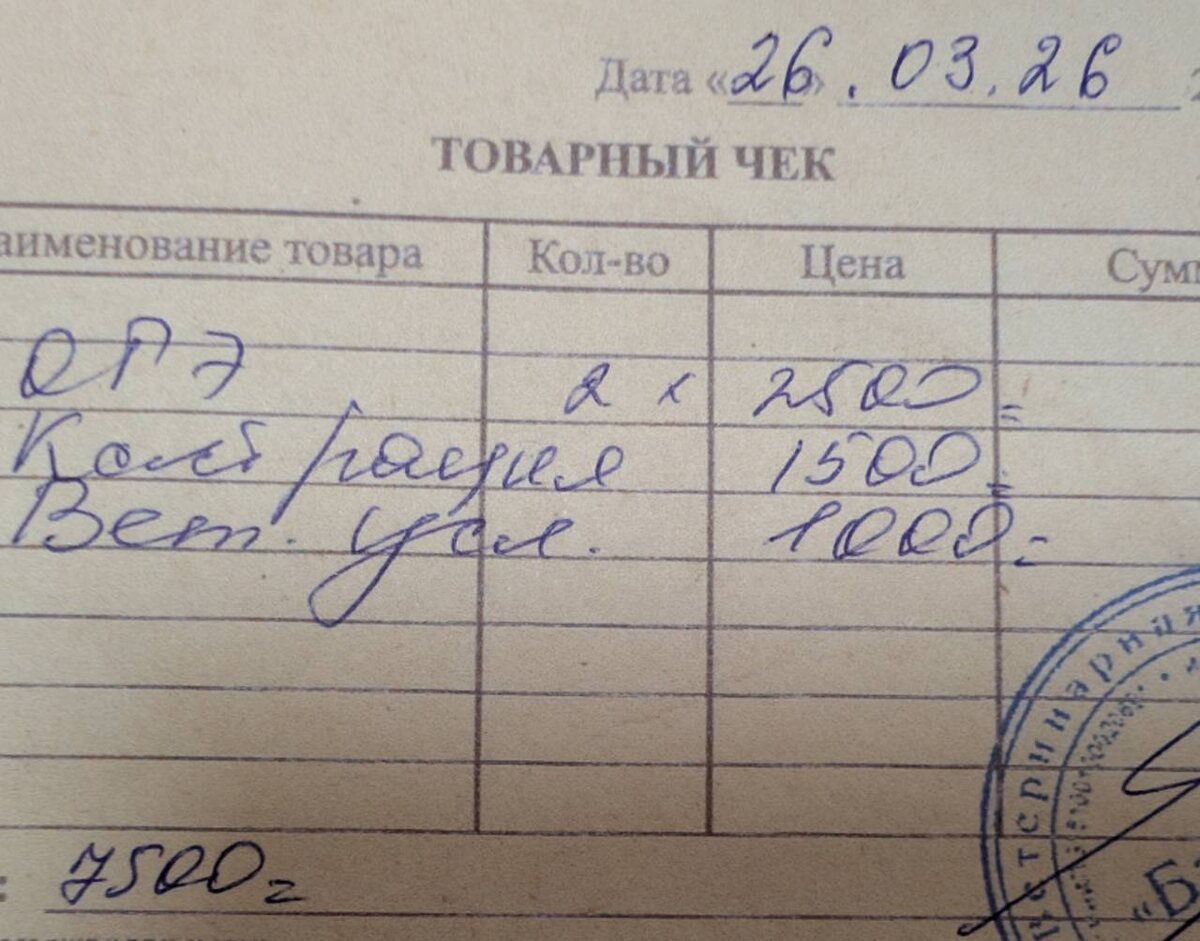 Дата «26» . 03. 26
ТОВАРНЫЙ ЧЕК
аименование товара Кол-во Цена Сум
ОГЭ 2 x 2500=
1500=
Вет. усл. 1000=
: 7500=
Ветеринарная
«Б